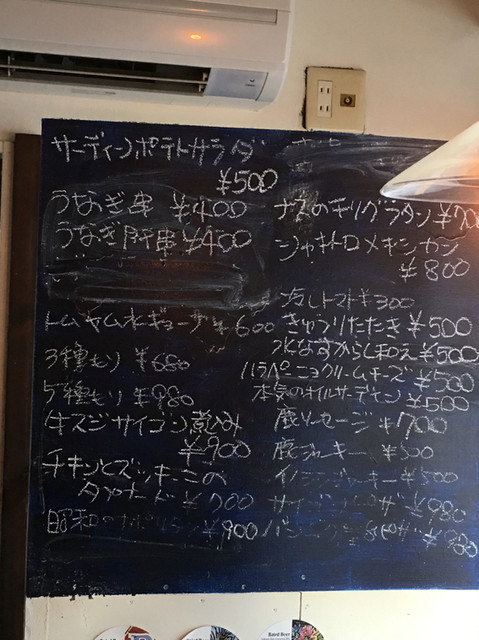 サーディンポテトサラダ
¥500
うなぎ串 ¥400
うなぎ肝串 ¥400
トムヤム水ギョーザ ¥600
3種もり ¥680
5種もり ¥980
牛スジサイコロ煮込み
¥900
チキンとズッキーニの
タプナード ¥700
昭和のナポリタン ¥900
ナスのキリグラタン ¥70
ジャキトロメキシカン
¥800
冷しトマト ¥300
きゅうりたたき ¥500
水なすからし和え ¥500
ハラペーニョクリームチーズ ¥500
本気のオイルサーディン ¥500
鹿ソーセージ ¥700
鹿ジャーキー ¥500
イノシシジャーキー ¥500
¥980
Baird Beer